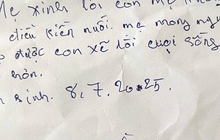 Mẹ xinh lỗi con mẹ kh
điều kiện nuôi. mẹ mong ng
được con xẽ lồi cuội sống
hơn.
sinh. 8, 7. 2025.